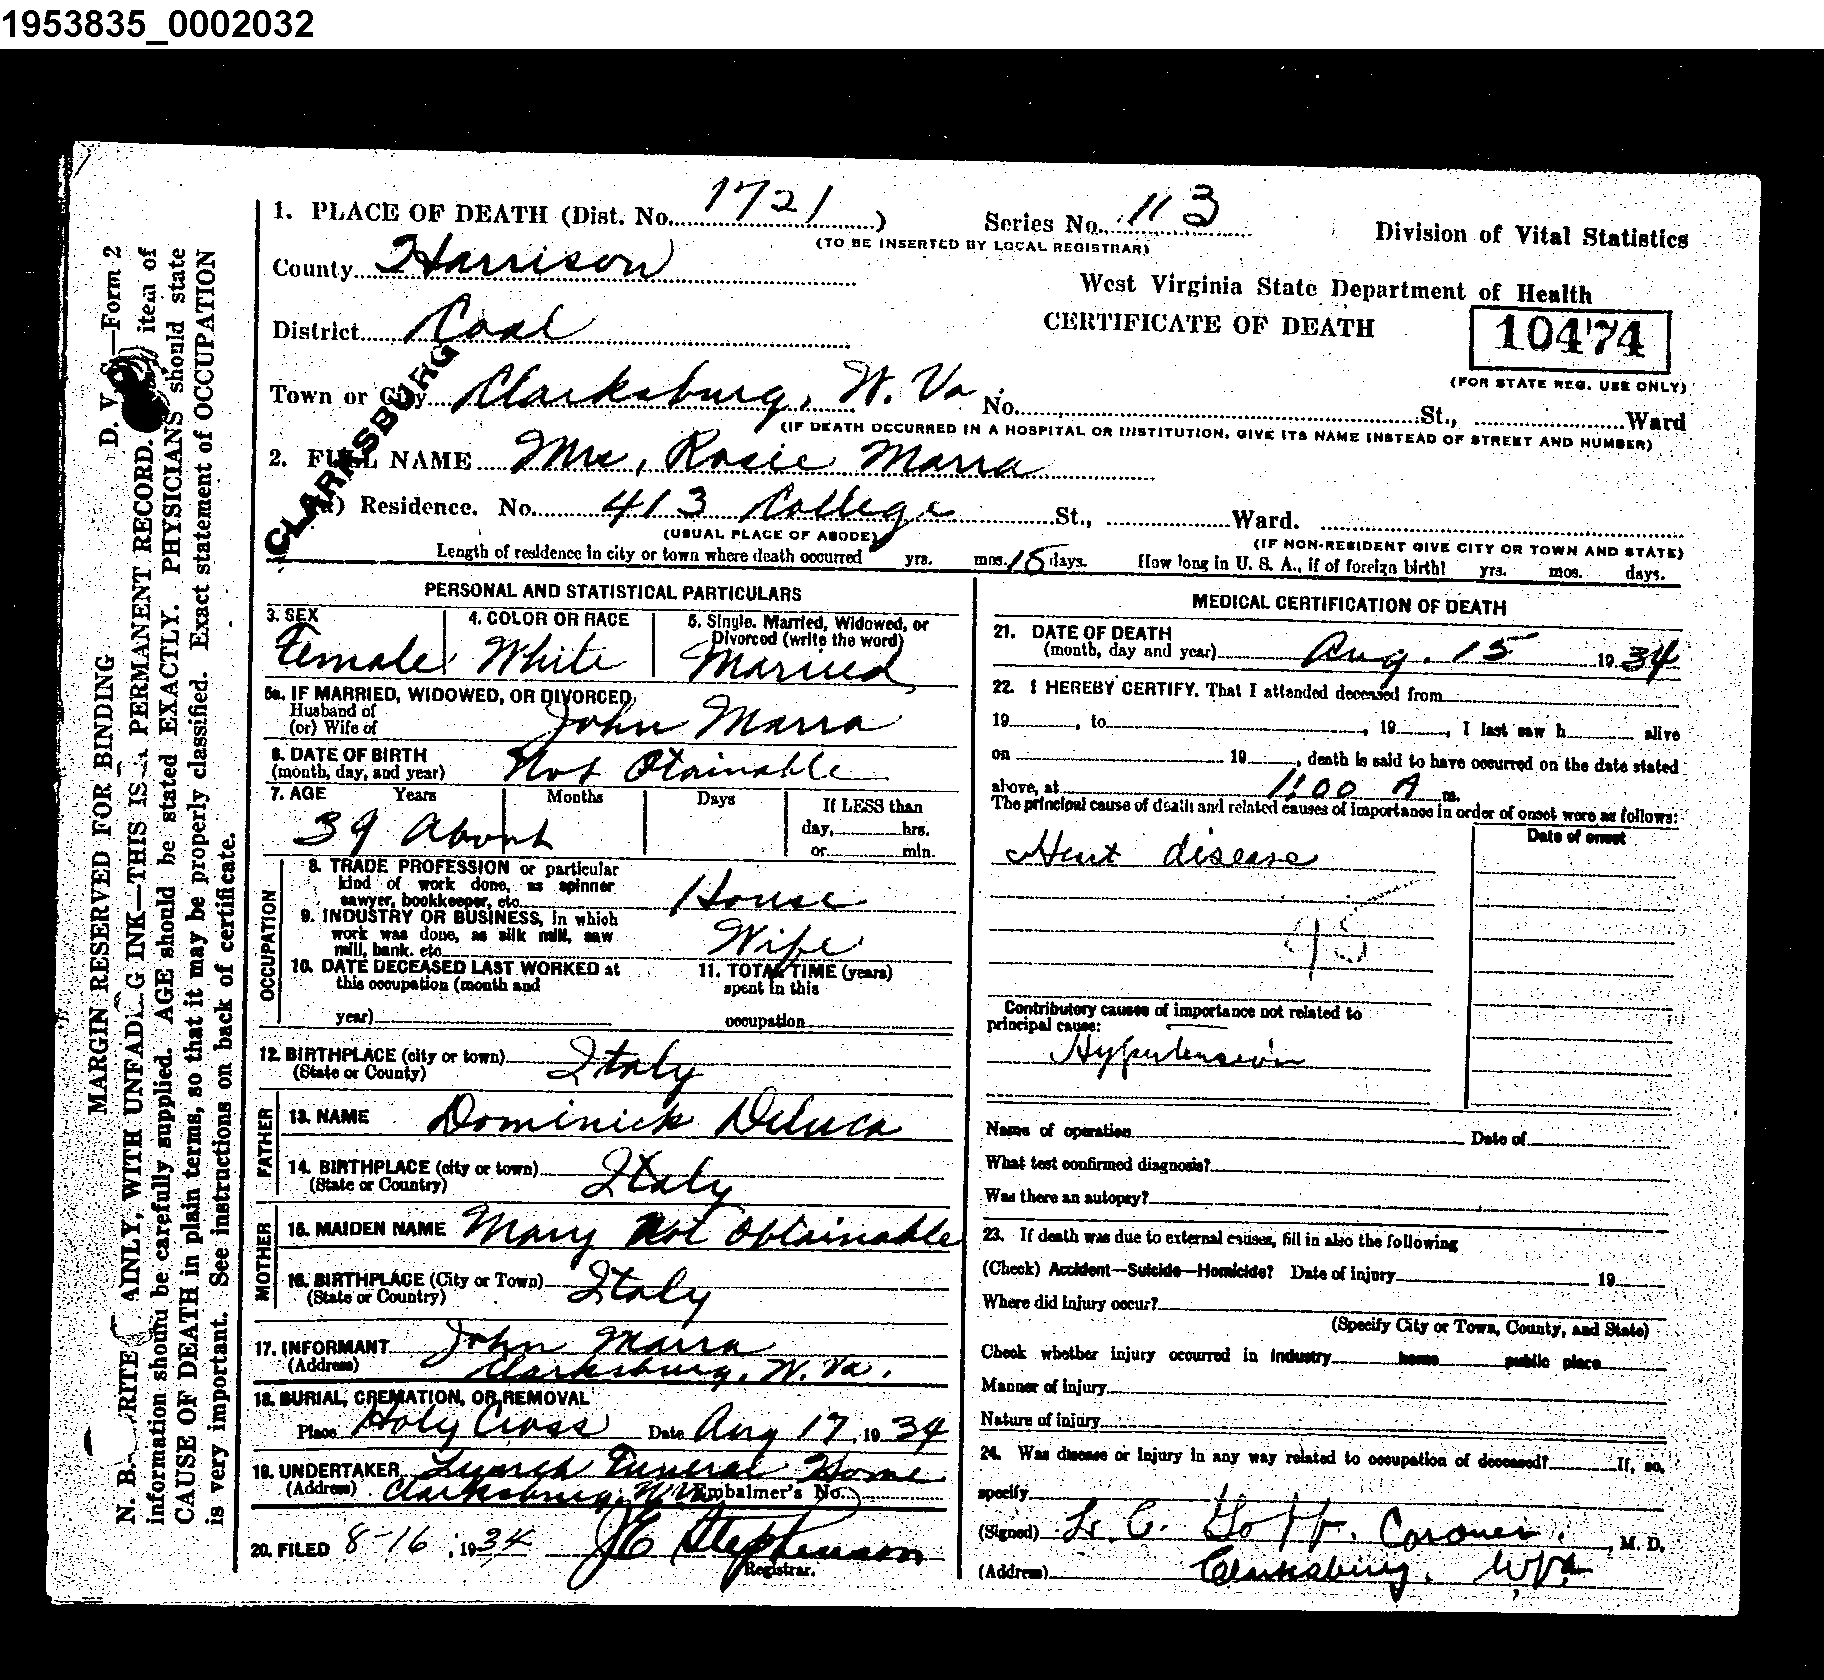 1953835_0002032
1. PLACE OF DEATH (Dist. No. 1721 )
Series No. 113
(TO BE INSERTED BY LOCAL REGISTRAR)
Division of Vital Statistics
County Harrison
West Virginia State Department of Health
District Coal
CERTIFICATE OF DEATH
10474
(FOR STATE REG. USE ONLY)
CLARKSBURG
Town or City Clarksburg, W. Va. No. St., Ward
(IF DEATH OCCURRED IN A HOSPITAL OR INSTITUTION, GIVE ITS NAME INSTEAD OF STREET AND NUMBER)
2. FULL NAME Mrs, Rosie Marra
(a) Residence. No. 413 College St., Ward.
(USUAL PLACE OF ABODE)
(IF NON-RESIDENT GIVE CITY OR TOWN AND STATE)
Length of residence in city or town where death occurred yrs. mos. 15 days. How long in U. S. A., if of foreign birth? yrs. mos. days.
PERSONAL AND STATISTICAL PARTICULARS
3. SEX
Female
4. COLOR OR RACE
White
5. Single, Married, Widowed, or
Divorced (write the word)
Married
5a. IF MARRIED, WIDOWED, OR DIVORCED
Husband of
(or) Wife of John Marra
6. DATE OF BIRTH
(month, day, and year) Not Otainable
7. AGE Years Months Days If LESS than
39 About
day, hrs.
or min.
OCCUPATION
8. TRADE PROFESSION or particular
kind of work done, as spinner
sawyer, bookkeeper, etc. House
9. INDUSTRY OR BUSINESS, in which
work was done, as silk mill, saw
mill, bank. etc. Wife
10. DATE DECEASED LAST WORKED at
this occupation (month and
year)
11. TOTAL TIME (years)
spent in this
occupation
12. BIRTHPLACE (city or town) Italy
(State or County)
FATHER
13. NAME Dominick Deluca
14. BIRTHPLACE (city or town) Italy
(State or Country)
MOTHER
15. MAIDEN NAME Mary Not Obtainable
16. BIRTHPLACE (City or Town) Italy
(State or Country)
17. INFORMANT John Marra
(Address) Clarksburg, W. Va.
18. BURIAL, CREMATION, OR REMOVAL
Place Holy Cross Date Aug 17, 1934
19. UNDERTAKER Lynch Funeral Home
(Address) Clarksburg, W. Va. Embalmer's No.
20. FILED 8-16, 1934 J E Stephenson
Registrar.
MEDICAL CERTIFICATION OF DEATH
21. DATE OF DEATH
(month, day and year) Aug. 15 1934
22. I HEREBY CERTIFY, That I attended deceased from
19 , to , 19 , I last saw h alive
on 19 , death is said to have occurred on the date stated
above, at 11:00 A m.
The principal cause of death and related causes of importance in order of onset were as follows:
Date of onset
Heart disease
95
Contributory causes of importance not related to
principal cause:
Hypertension
Name of operation Date of
What test confirmed diagnosis?
Was there an autopsy?
23. If death was due to external causes, fill in also the following
(Check) Accident—Suicide—Homicide? Date of injury 19
Where did injury occur?
(Specify City or Town, County, and State)
Check whether injury occurred in industry home public place
Manner of injury
Nature of injury
24. Was disease or injury in any way related to occupation of deceased? If, so,
specify
(Signed) L. C. Goff, Coroner, M. D.
(Address) Clarksburg, W Va.
D. V. S.—Form 2
MARGIN RESERVED FOR BINDING
N. B.—WRITE PLAINLY, WITH UNFADING INK—THIS IS A PERMANENT RECORD. item of
information should be carefully supplied. AGE should be stated EXACTLY. PHYSICIANS should state
CAUSE OF DEATH in plain terms, so that it may be properly classified. Exact statement of OCCUPATION
is very important. See instructions on back of certificate.